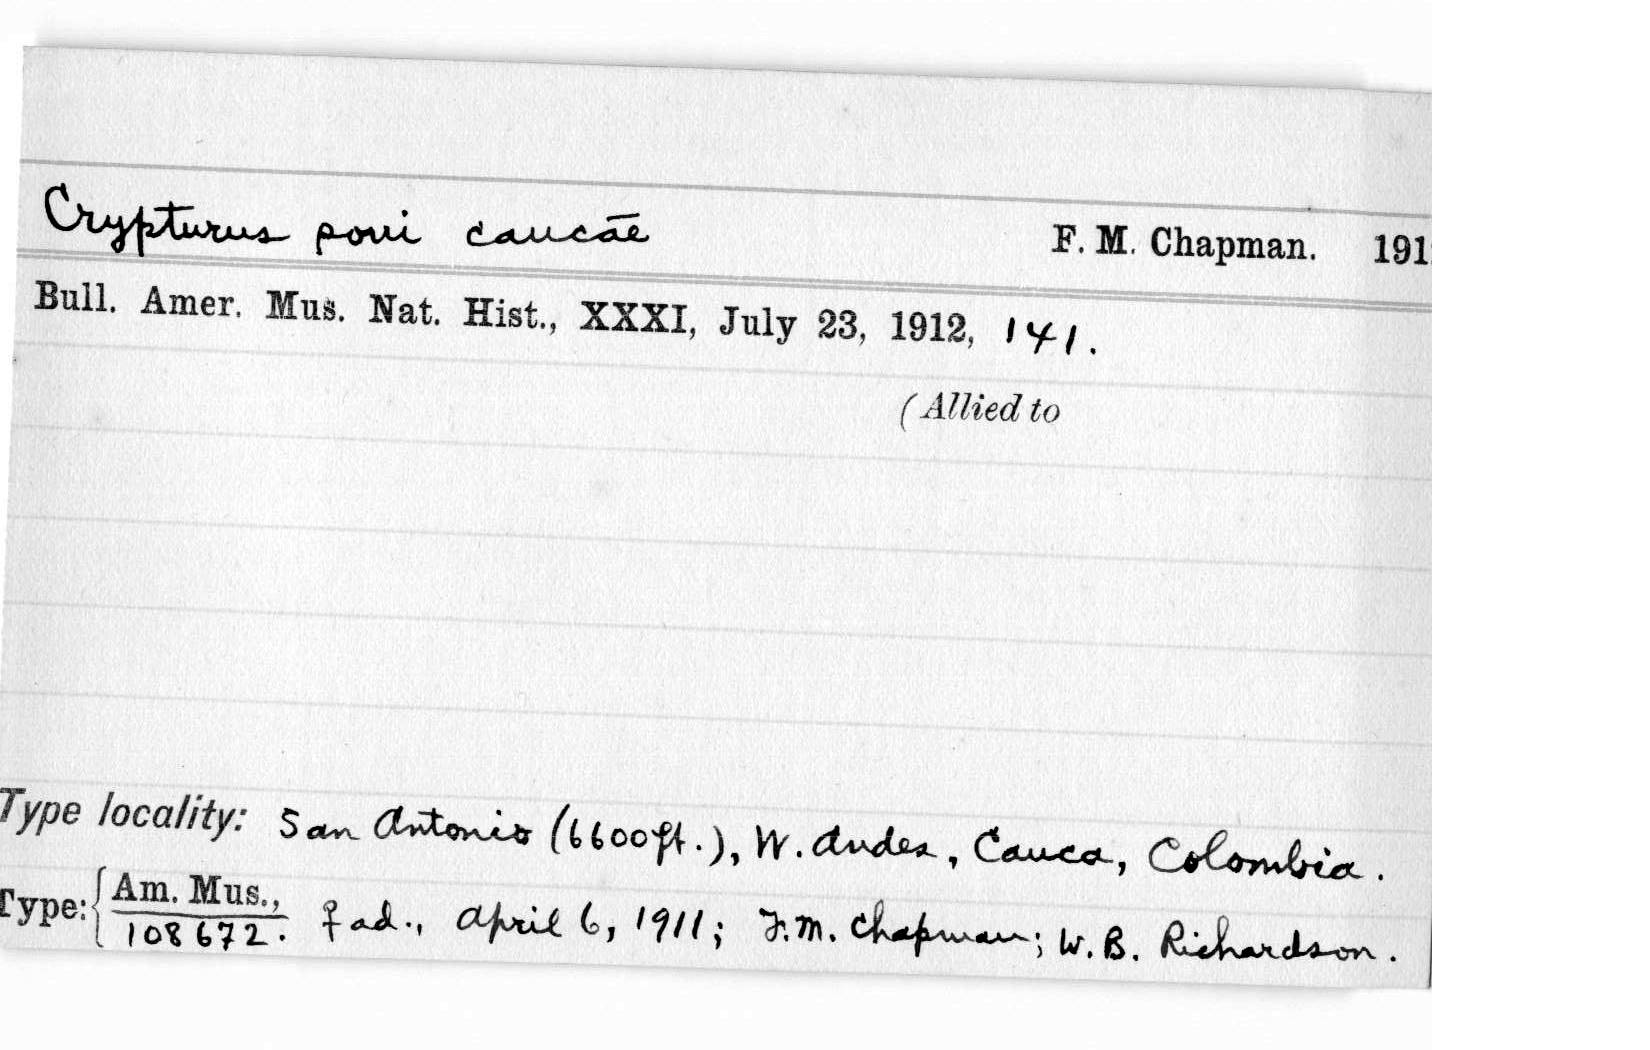 Crypturus soui caucae F. M. Chapman. 191
Bull. Amer. Mus. Nat. Hist., XXXI, July 23, 1912, 141.
(Allied to
Type locality: San Antonio (6600 ft.), W. Andes, Cauca, Colombia.
Type: { Am. Mus.,
108672. ♀ ad., April 6, 1911; F. M. Chapman; W. B. Richardson.